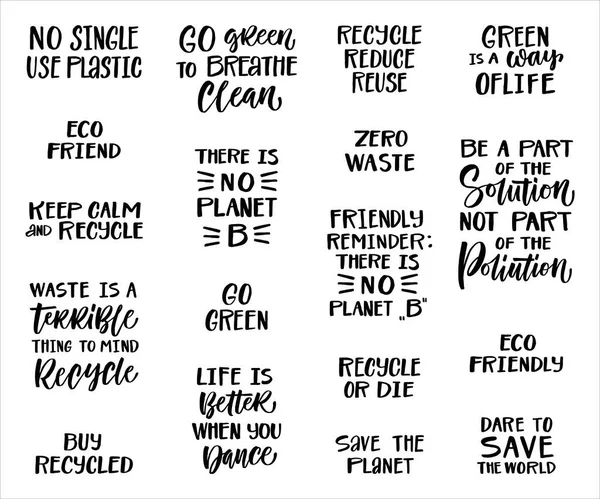 NO SINGLE
USE PLASTIC
ECO
FRIEND
KEEP CALM
AND RECYCLE
WASTE IS A
TERRIBLE
THING TO MIND
Recycle
BUY
RECYCLED
GO green
TO BREATHE
Clean
THERE IS
NO
PLANET
B
GO
GREEN
LIFE IS
Better
WHEN YOU
Dance
RECYCLE
REDUCE
REUSE
ZERO
WASTE
FRIENDLY
REMINDER:
THERE IS
NO
PLANET „B"
RECYCLE
OR DIE
SAVE THE
PLANET
GREEN
IS A way
OFLIFE
BE A PART
OF THE
Solution
NOT PART
OF THE
Pollution
ECO
FRIENDLY
DARE TO
SAVE
THE WORLD